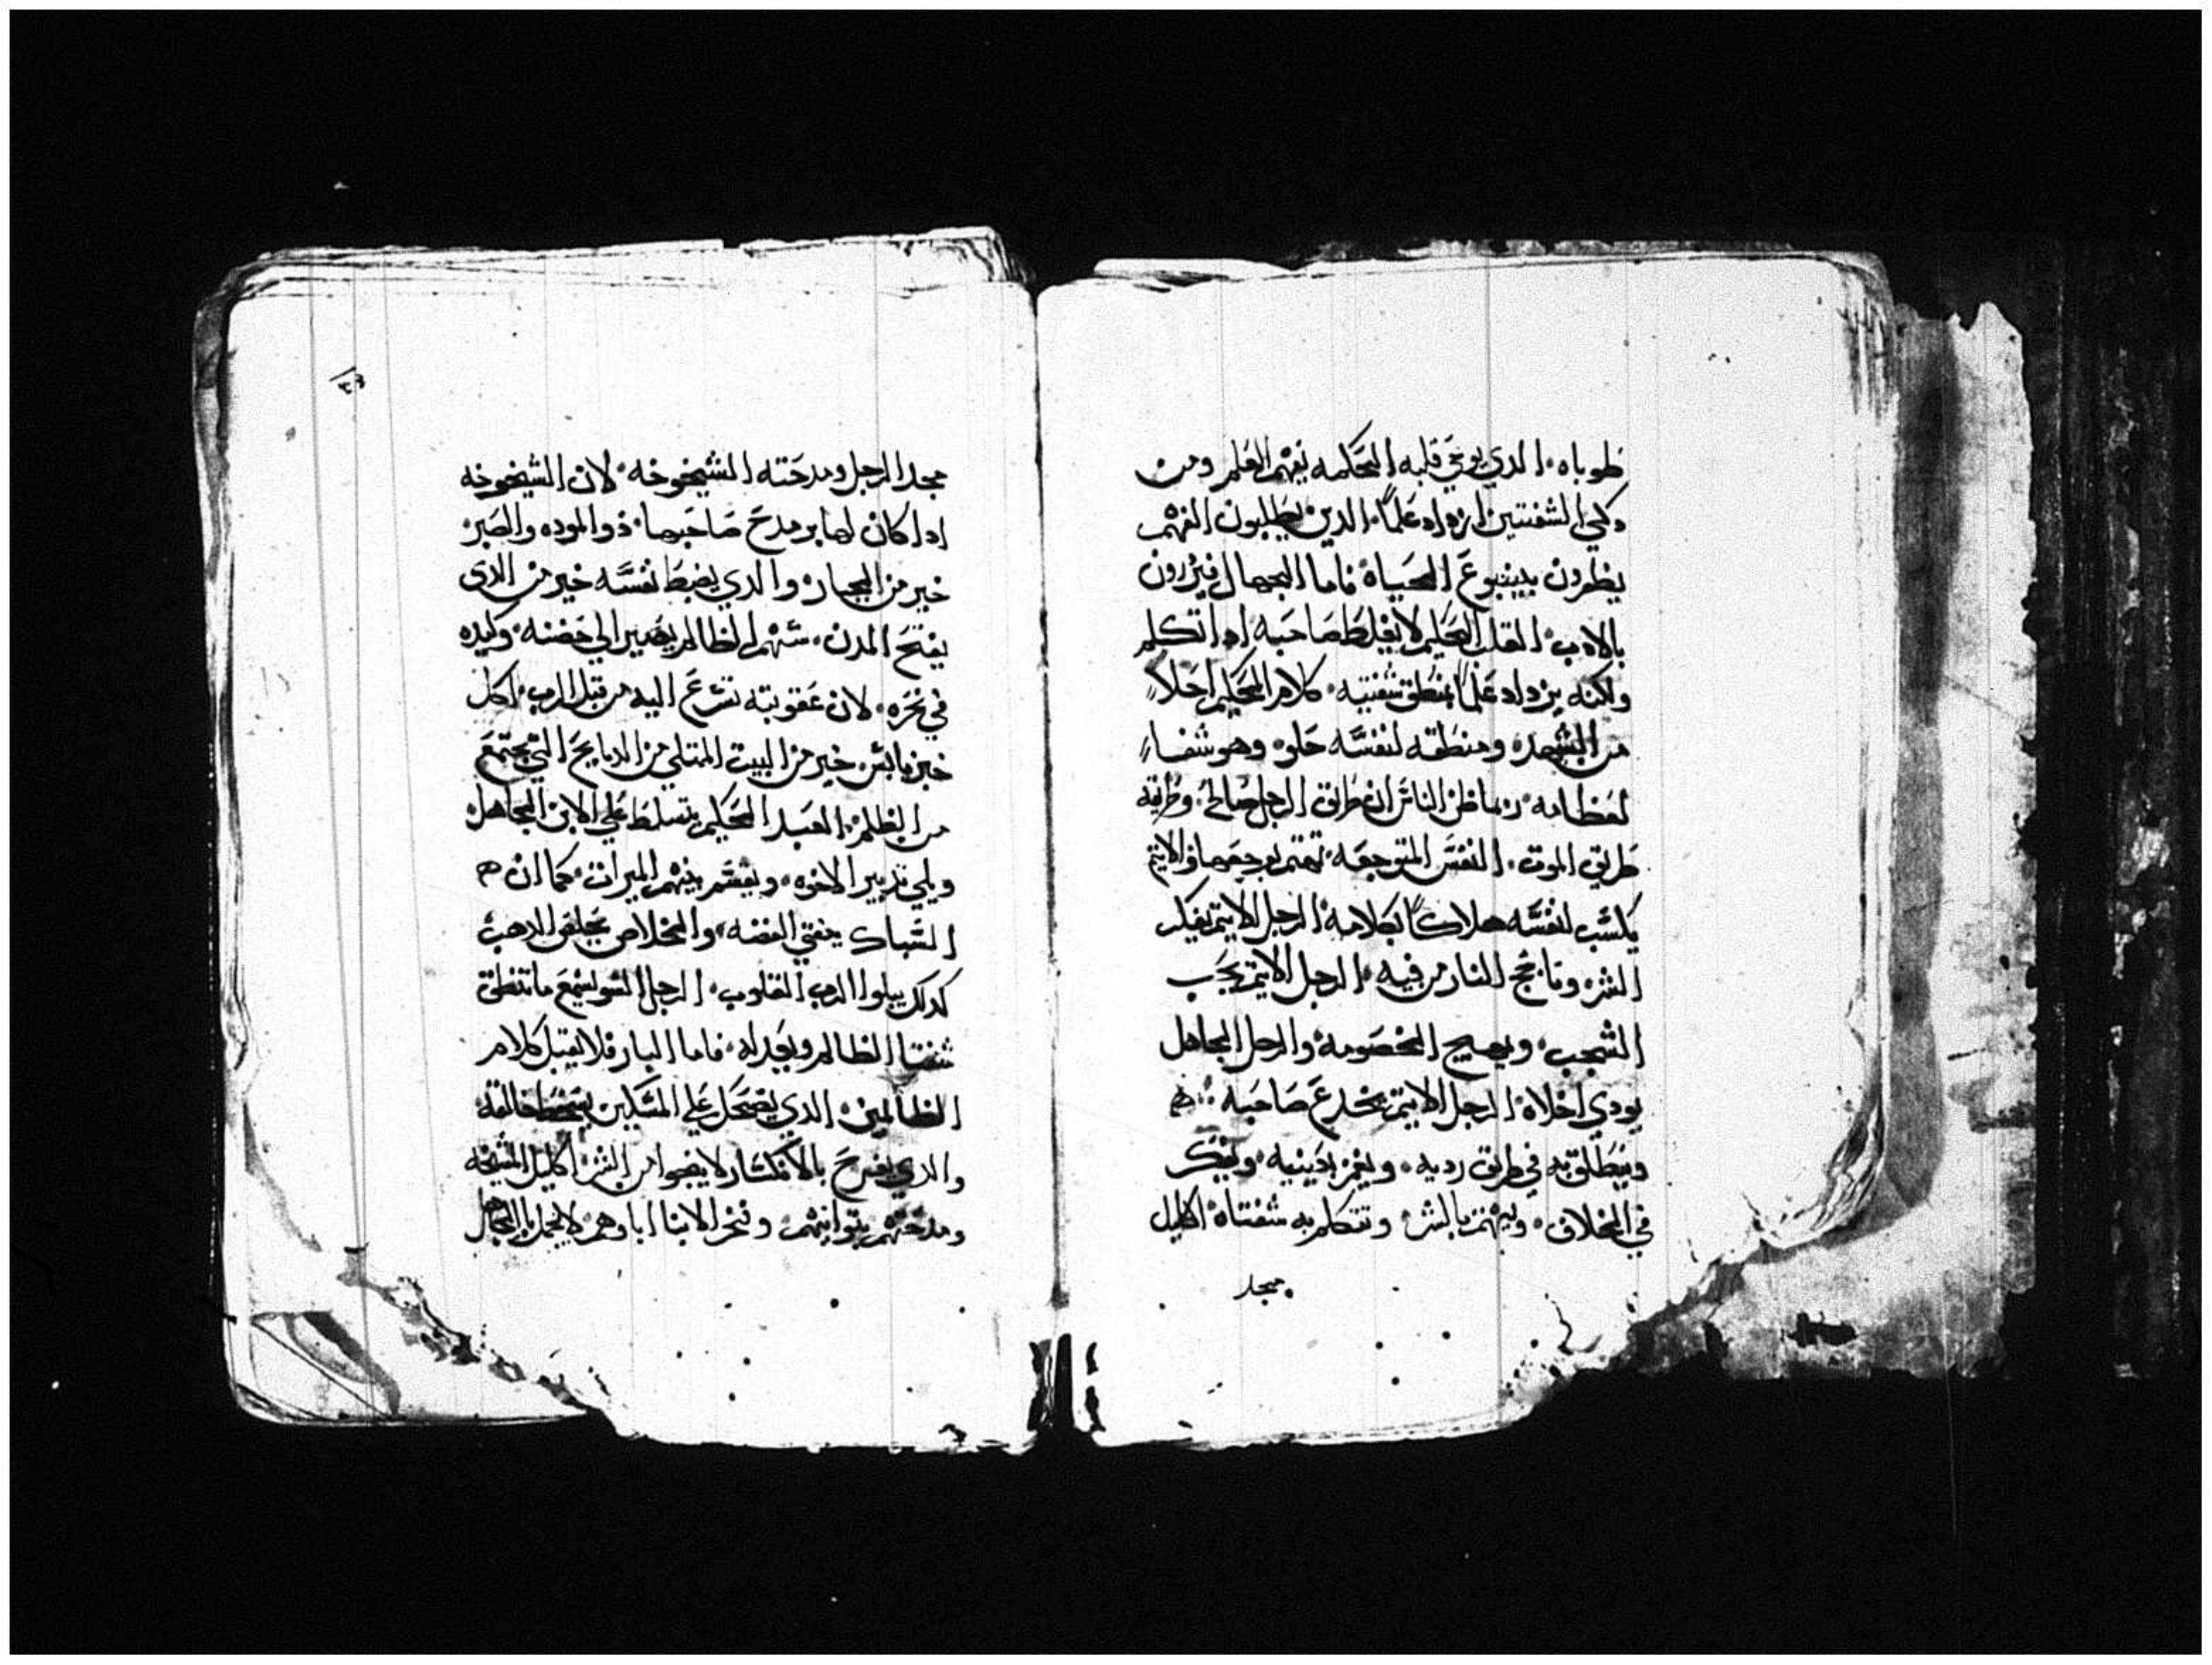 طوباه الذي يوعي قلبه الحكمه يفهم العلم ومن
دكي الشفتين ازداد علماً الدين يطلبون الفهم
يظفرون بينبوع الحياة فاما الجهال فيزرون
بالادب القلب الحكيم لا يغلط صاحبه ادا تكلم
ولكنه يزداد علماً بمنطق شفتيه كلام الحكيم احلا
من الشهد ومنطقه لنفسه حلو وهو شفاء
لعظامه ربما ظن الناس ان طريق الرجل صالح وطريقه
طريق الموت النفس المتوجعه تهتم بوجعها والاثيم
يكسب لنفسه هلاكاً بكلامه الرجل الاثيم يفكر
الشر وتاجج النار من فيه الرجل الاثيم يحب
الشجب ويهيج الخصومه والرجل الجاهل
يودي اخلاه الرجل الاثيم يخدع صاحبه
وينطلق به في طريق رديه ويغمز بعينيه ويفكر
في الخلاف ويهتم بالشر وتتكلم به شفتاه اكليل
مجد
٤٣
مجد الرجل ومدحته الشيخوخه لان الشيخوخه
ادا كان لها بر مدح صاحبها ذو الموده والصبر
خير من الجبار والدي يضبط نفسه خير من الدى
يفتح المدن سهم الظالم يصير الي حضنه وكيده
في نحره لان عقوبته تسرع اليه من قبل الرب اكل
خبز يابس خير من البيت الممتلي من الدبايح التي تجتمع
من الظلم العبد الحكيم يتسلط علي الابن الجاهل
ويلي تدبير الاخوه ويقسم بينهم الميرات كما ان
السباك ينقي الفضه والخلاص الدهب
كدلك يبلوا الرب القلوب الرجل السو يسمع ما تنطق
شفتا الظالم فاما البار فلا يقبل كلام
الظالمين الدي يضحك علي المسكين يسخط خالقه
والدي يفرح بالانكسار لا ينجوا من الشر اكليل المشيخه
ومدحتهم وفخر الابنا اباوهم لا يجمل بالجاهل